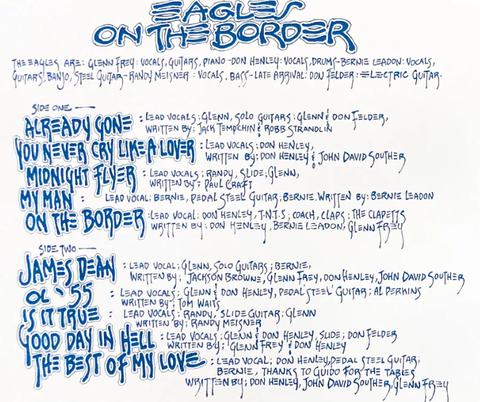 EAGLES
ON THE BORDER
THE EAGLES ARE: GLENN FREY: VOCALS, GUITARS, PIANO-DON HENLEY: VOCALS, DRUMS-BERNIE LEADON: VOCALS,
GUITARS, BANJO, STEEL GUITAR-RANDY MEISNER: VOCALS, BASS-LATE ARRIVAL: DON FELDER: ELECTRIC GUITAR
SIDE ONE
ALREADY GONE : LEAD VOCALS: GLENN, SOLO GUITARS: GLENN & DON FELDER,
WRITTEN BY: JACK TEMPCHIN & ROBB STRANDLIN
YOU NEVER CRY LIKE A LOVER : LEAD VOCALS: DON HENLEY,
WRITTEN BY: DON HENLEY & JOHN DAVID SOUTHER
MIDNIGHT FLYER : LEAD VOCALS: RANDY, SLIDE: GLENN,
WRITTEN BY: PAUL CRAFT
MY MAN : LEAD VOCAL: BERNIE, PEDAL STEEL GUITAR; BERNIE. WRITTEN BY: BERNIE LEADON
ON THE BORDER : LEAD VOCAL: DON HENLEY, T.N.T.S; COACH, CLAPS: THE CLAPETTS
WRITTEN BY: DON HENLEY, BERNIE LEADON, GLENN FREY
SIDE TWO
JAMES DEAN : LEAD VOCAL; GLENN, SOLO GUITARS; BERNIE,
WRITTEN BY: JACKSON BROWNE, GLENN FREY, DON HENLEY, JOHN DAVID SOUTHER
OL' 55 : LEAD VOCALS: GLENN & DON HENLEY, PEDAL STEEL GUITAR: AL PERKINS
WRITTEN BY: TOM WAITS
IS IT TRUE : LEAD VOCALS: RANDY, SLIDE GUITAR: GLENN
WRITTEN BY: RANDY MEISNER
GOOD DAY IN HELL : LEAD VOCALS: GLENN & DON HENLEY, SLIDE; DON FELDER
WRITTEN BY: GLENN FREY & DON HENLEY
THE BEST OF MY LOVE : LEAD VOCAL; DON HENLEY, PEDAL STEEL GUITAR;
BERNIE, THANKS TO GUIDO FOR THE TABLES
WRITTEN BY; DON HENLEY, JOHN DAVID SOUTHER, GLENN FREY